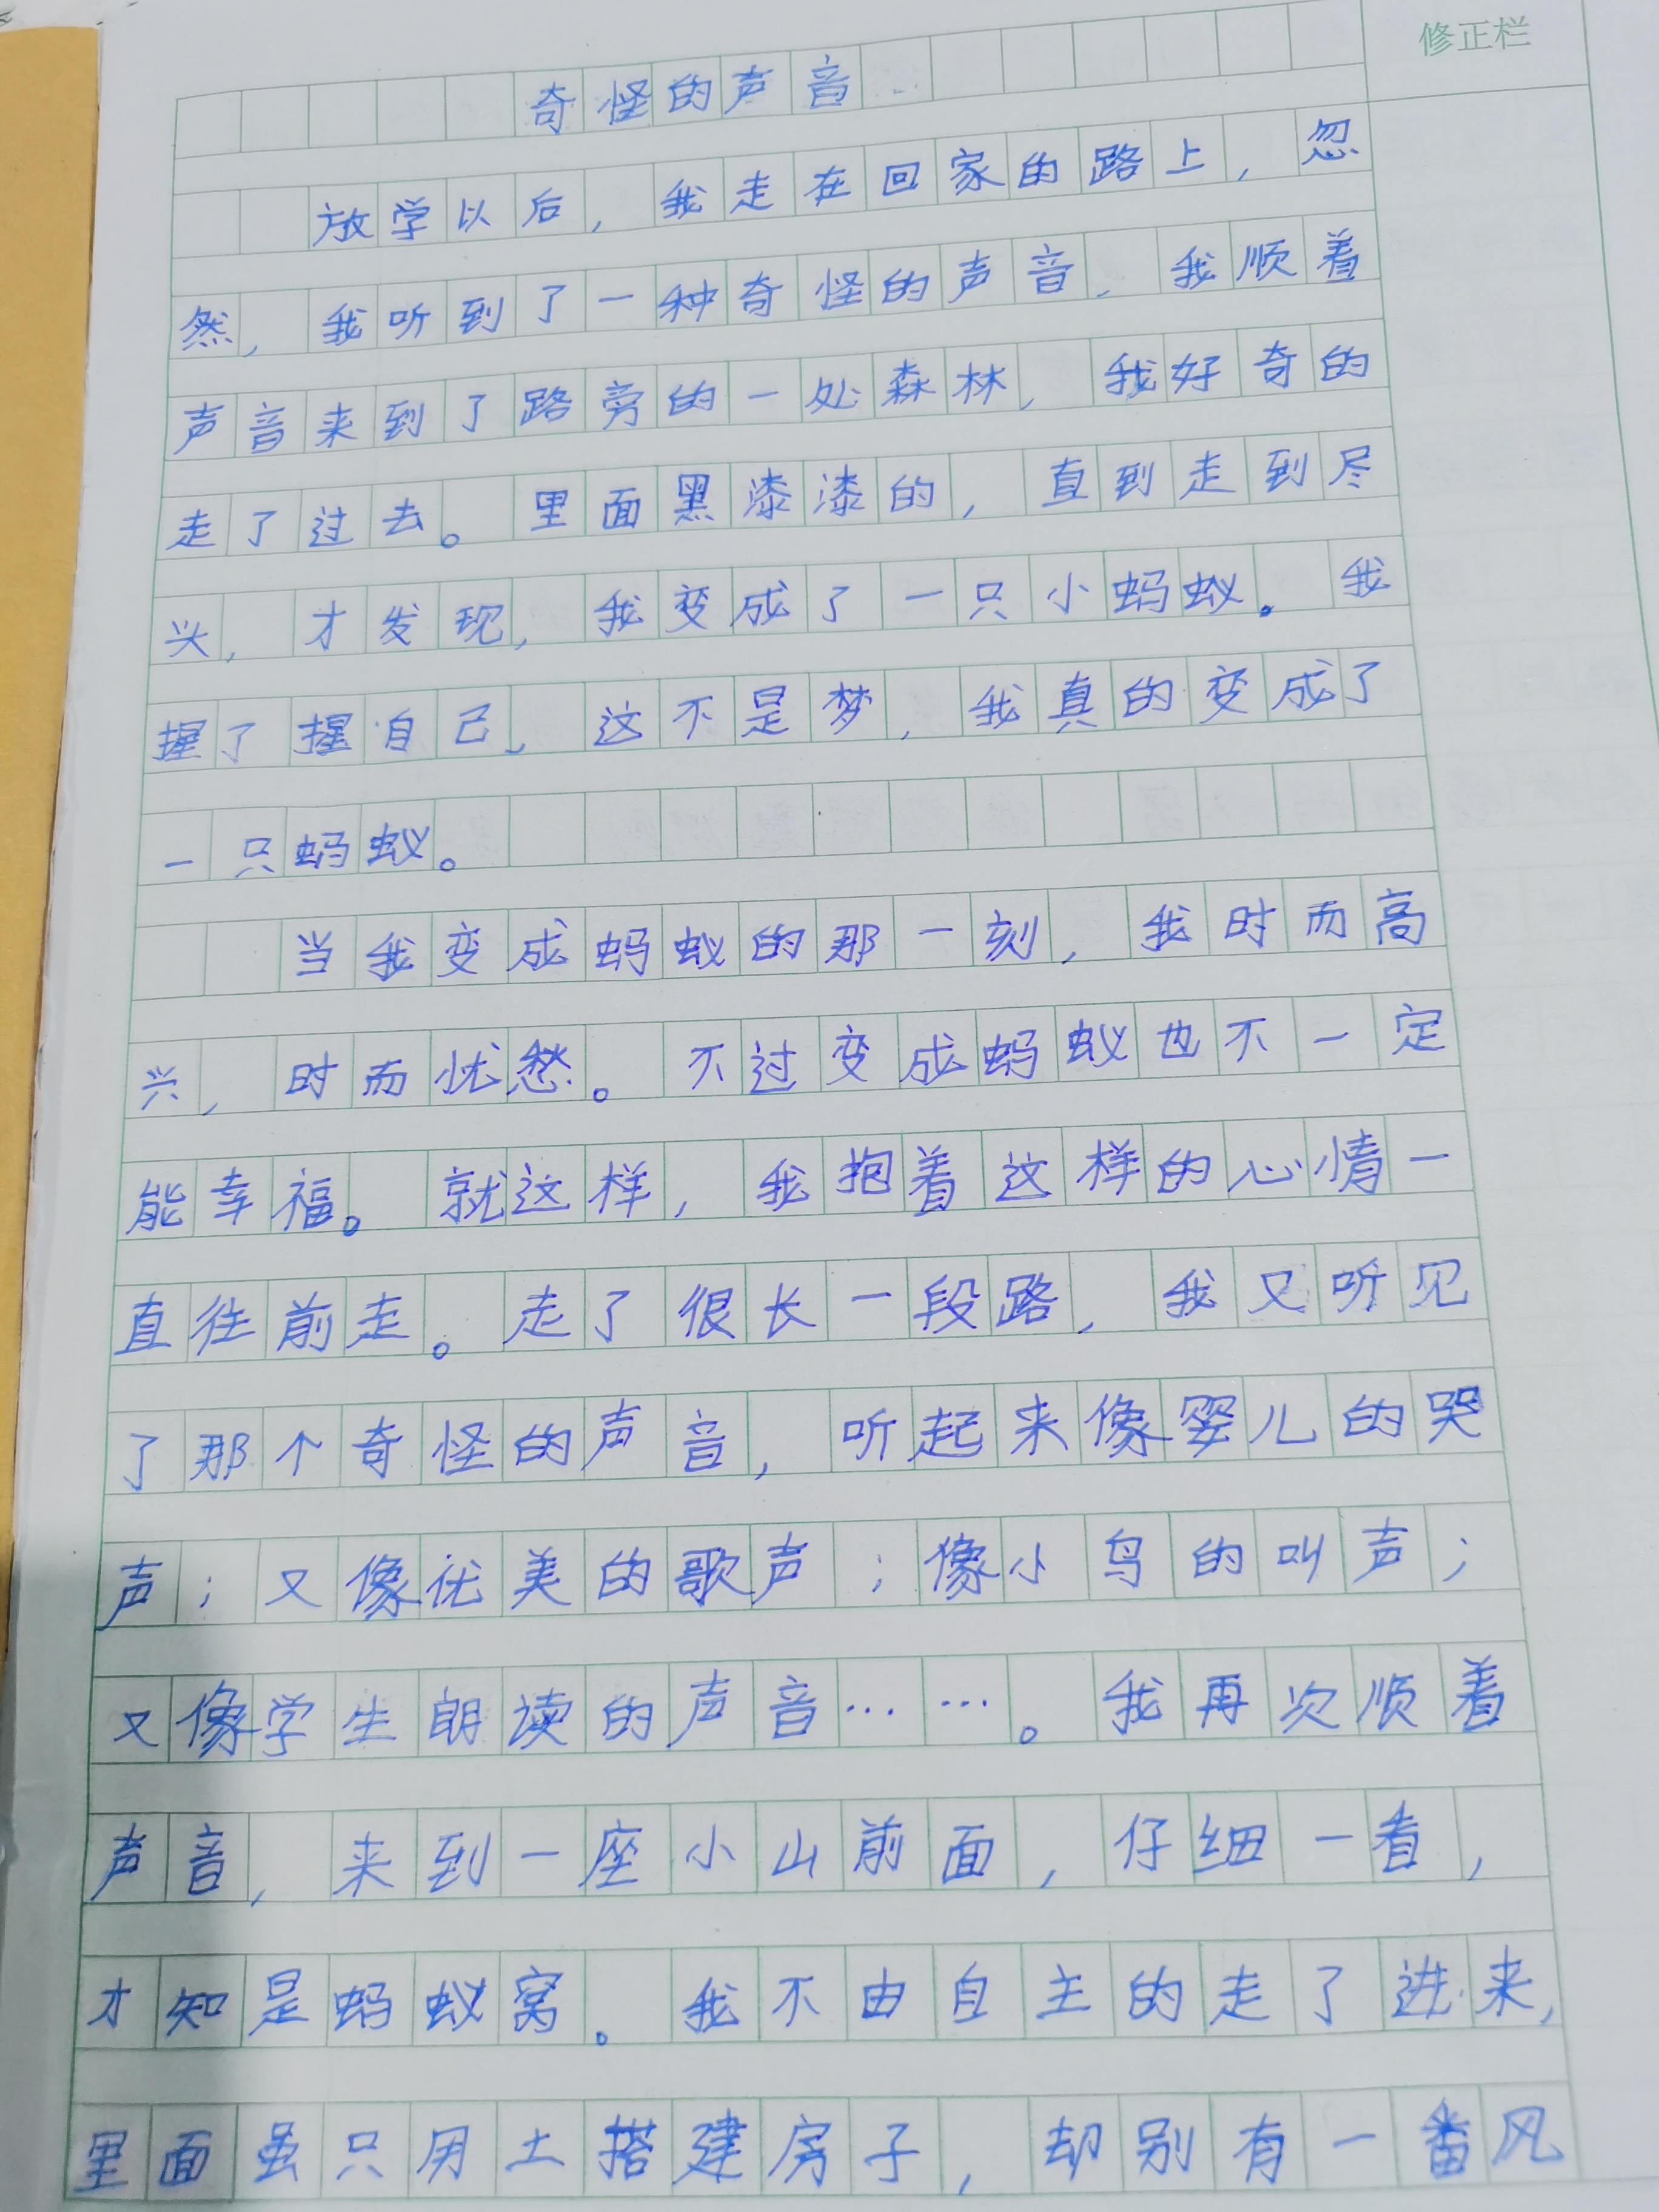 修正栏
奇怪的声音
放学以后，我走在回家的路上，忽
然，我听到了一种奇怪的声音，我顺着
声音来到了路旁的一处森林，我好奇的
走了过去。里面黑漆漆的，直到走到尽
头，才发现，我变成了一只小蚂蚁。我
握了握自己，这不是梦，我真的变成了
一只蚂蚁。
当我变成蚂蚁的那一刻，我时而高
兴，时而忧愁。不过变成蚂蚁也不一定
能幸福。就这样，我抱着这样的心情一
直往前走。走了很长一段路，我又听见
了那个奇怪的声音，听起来像婴儿的哭
声；又像优美的歌声；像小鸟的叫声；
又像学生朗读的声音……。我再次顺着
声音，来到一座小山前面，仔细一看，
才知是蚂蚁窝。我不由自主的走了进来，
里面虽只用土搭建房子，却别有一番风